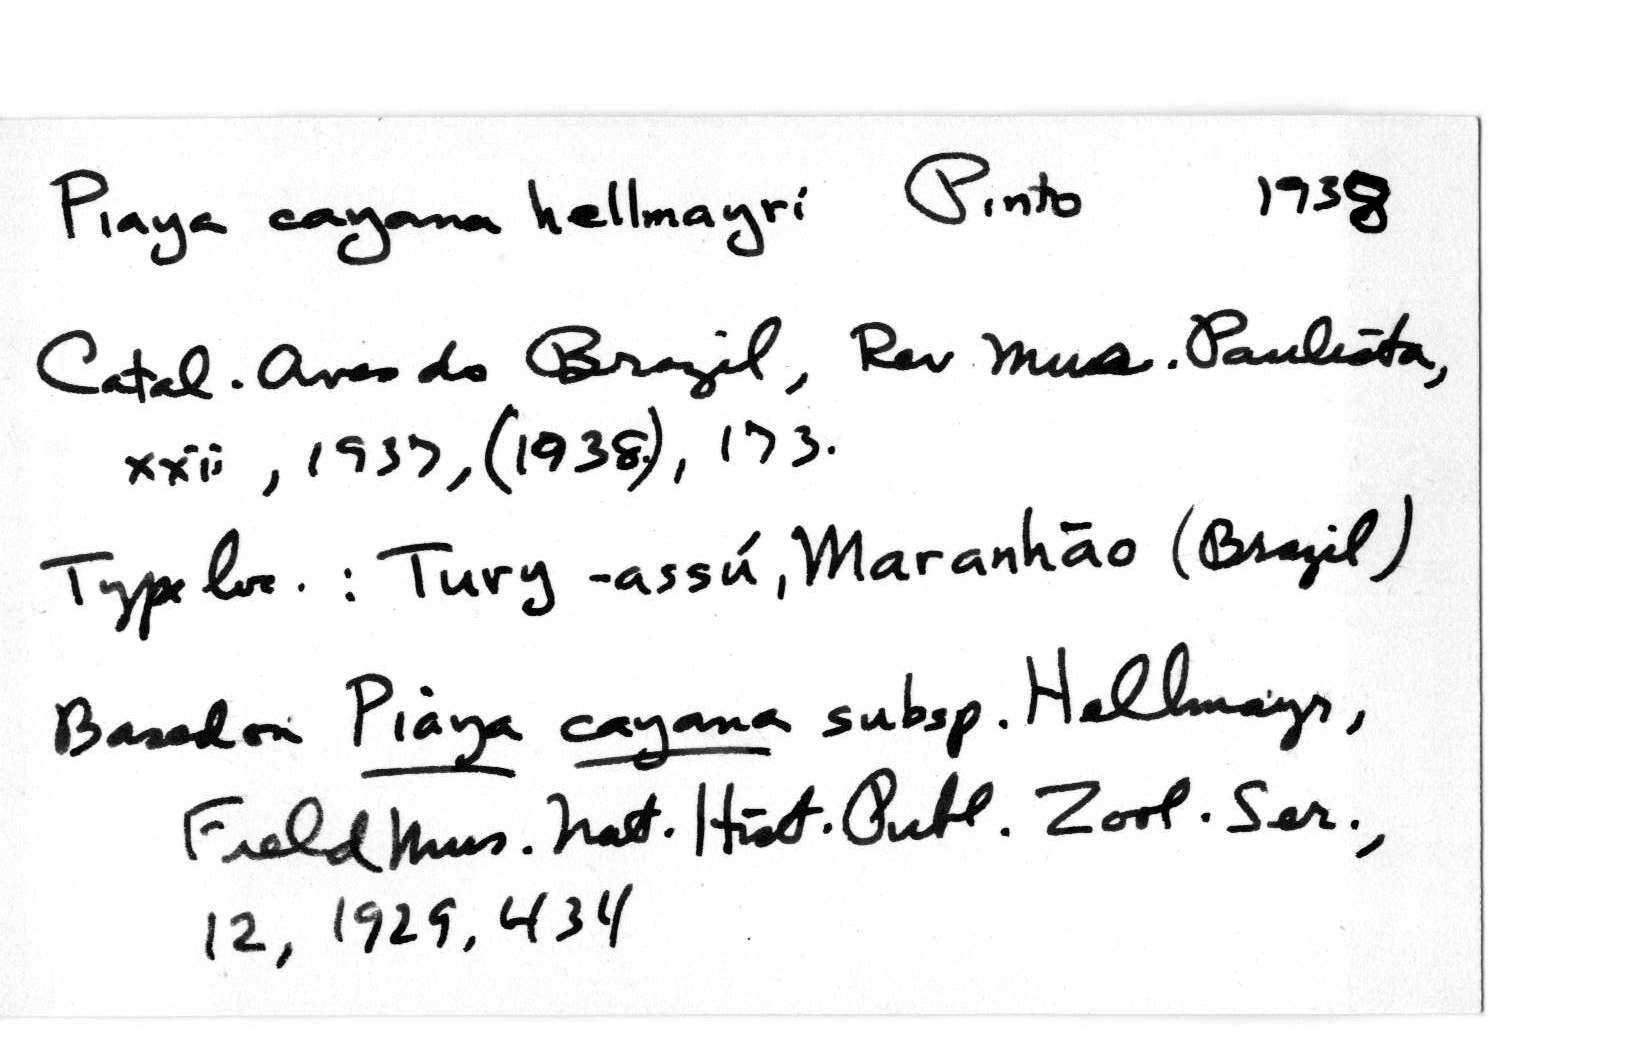 Piaya cayana hellmayri Pinto 1938
Catal. Aves do Brazil, Rev Mus. Paulista,
xxii, 1937, (1938), 173.
Type loc. : Tury-assú, Maranhão (Brazil)
Based on Piaya cayana subsp. Hellmayr,
Field Mus. Nat. Hist. Publ. Zool. Ser.,
12, 1929, 434